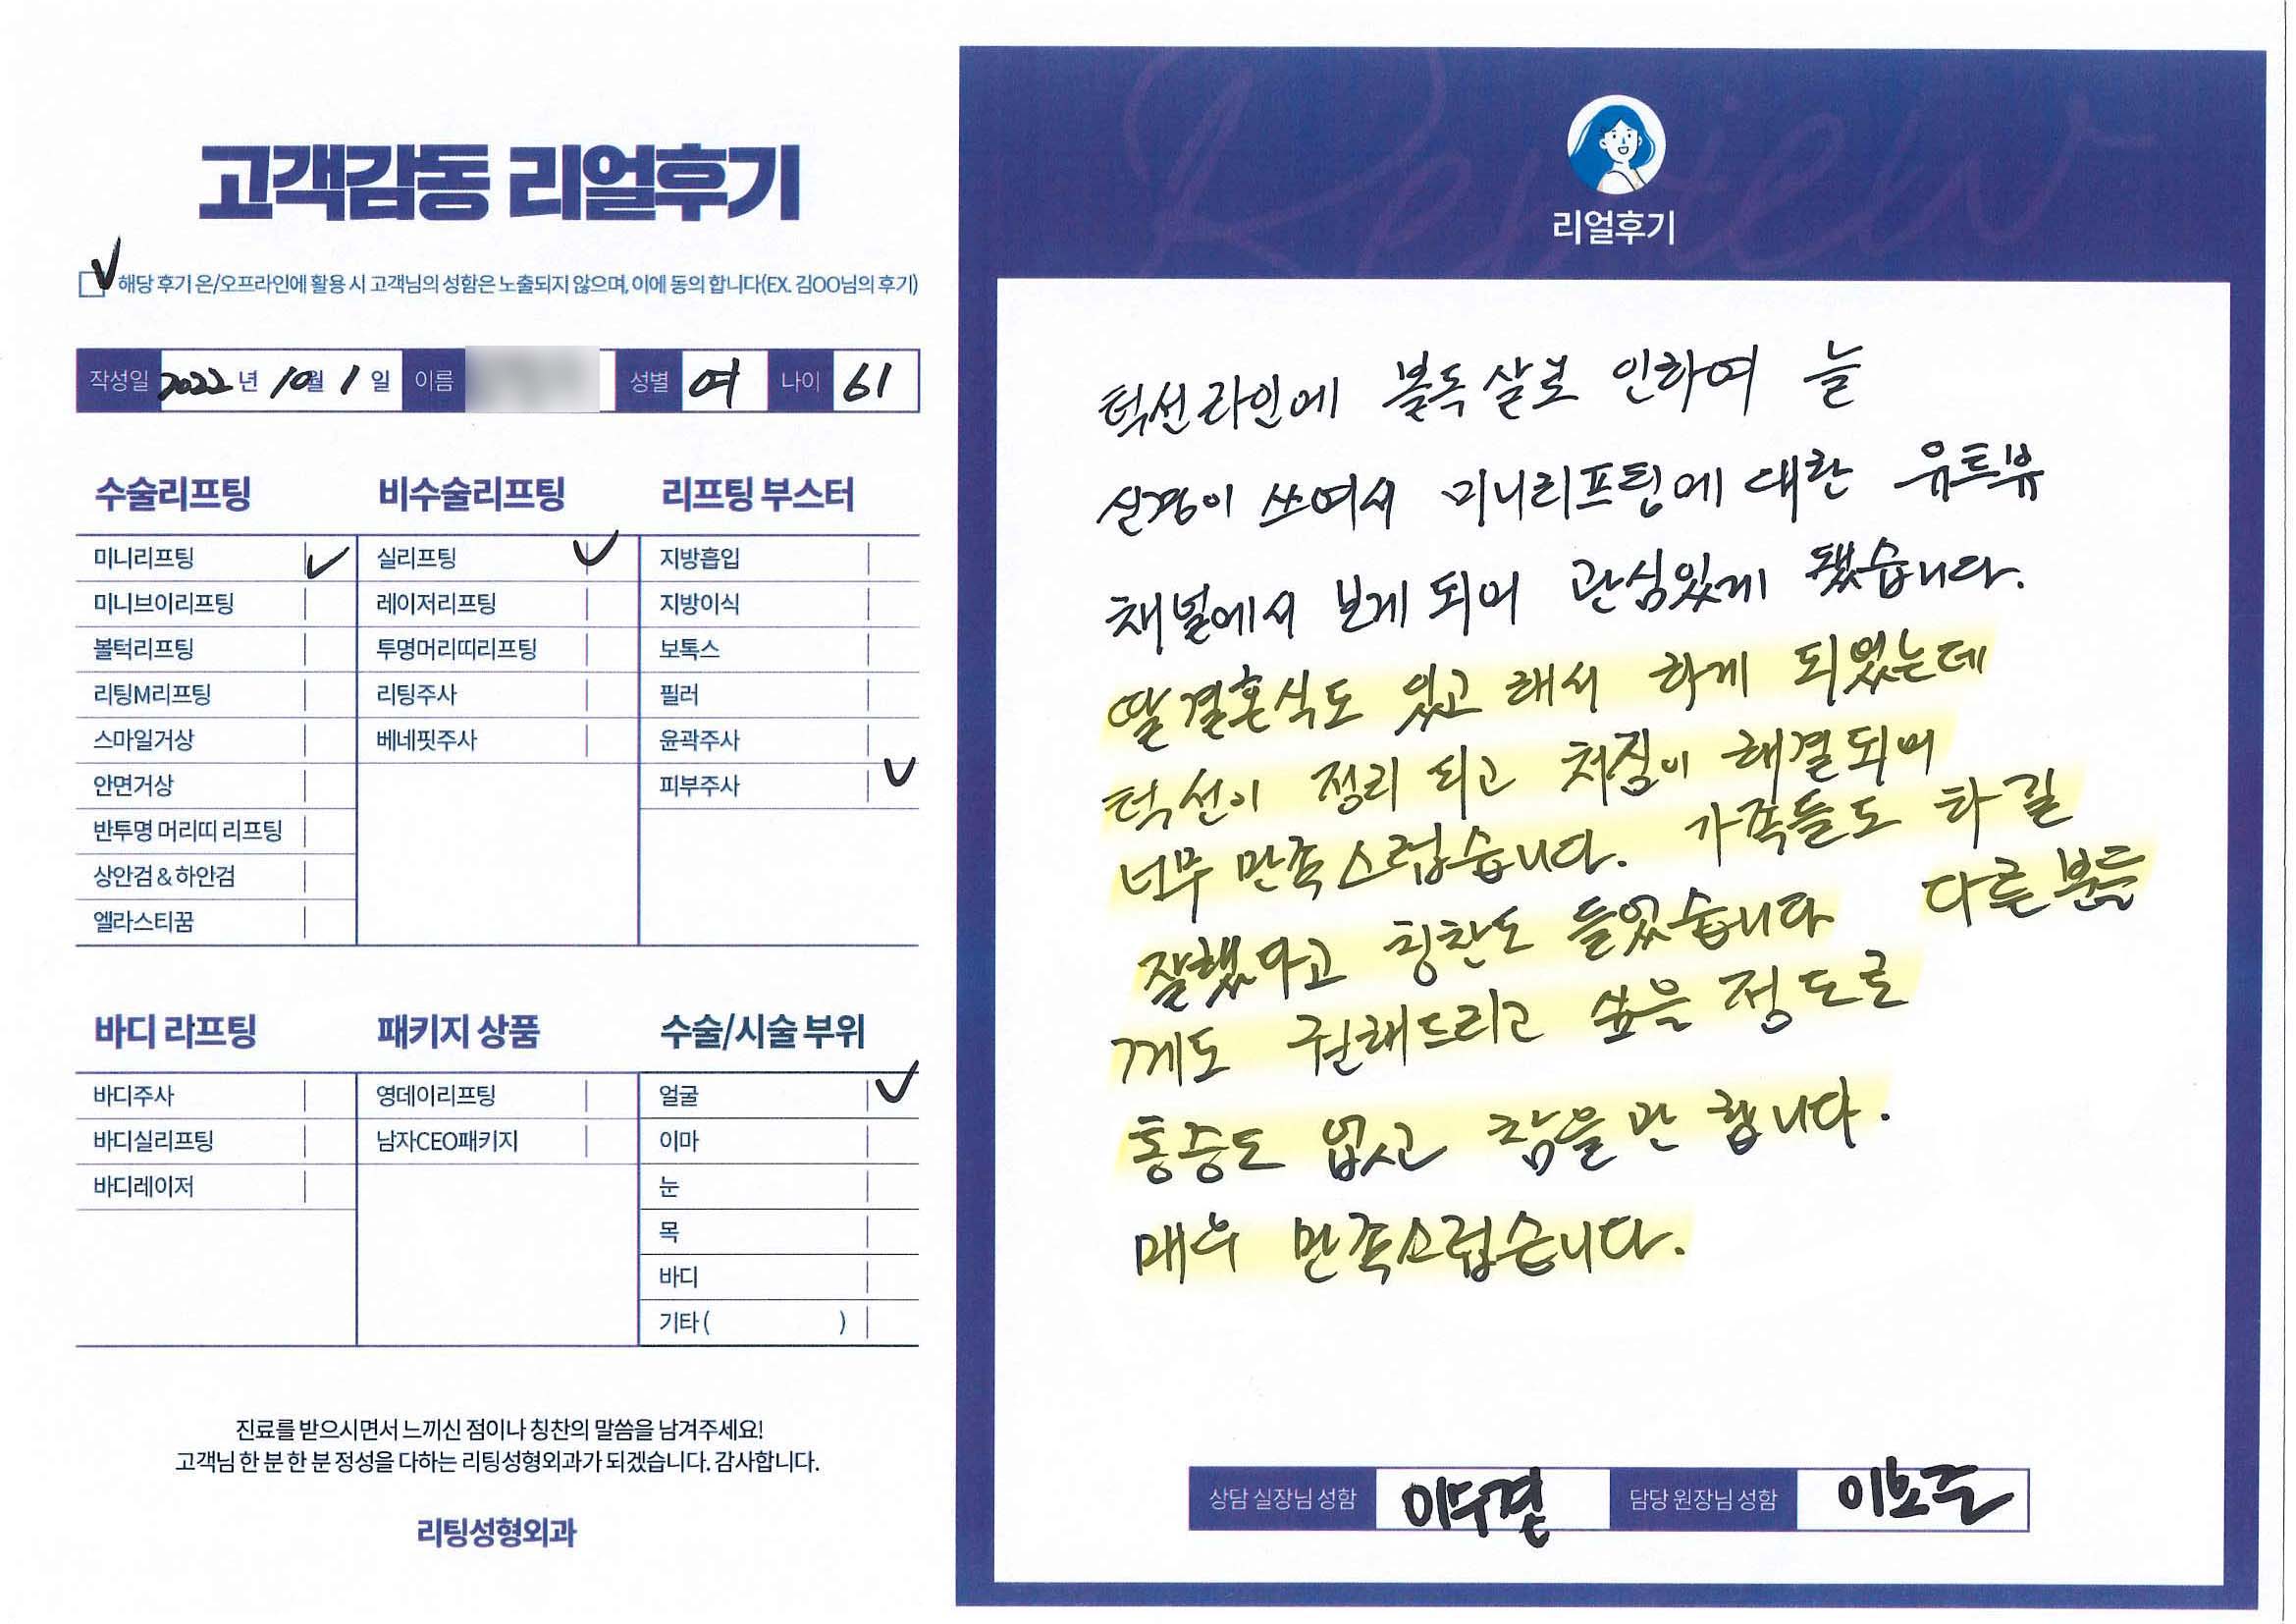 고객감동 리얼후기
해당 후기 온/오프라인에 활용 시 고객님의 성함은 노출되지 않으며, 이에 동의 합니다(EX. 김OO님의 후기)
작성일 2022년 10월 1일 이름 성별 여 나이 61
수술리프팅
미니리프팅
미니브이리프팅
볼턱리프팅
리팅M리프팅
스마일거상
안면거상
반투명 머리띠 리프팅
상안검 & 하안검
엘라스티꿈
비수술리프팅
실리프팅
레이저리프팅
투명머리띠리프팅
리팅주사
베네핏주사
리프팅 부스터
지방흡입
지방이식
보톡스
필러
윤곽주사
피부주사
바디 라프팅
바디주사
바디실리프팅
바디레이저
패키지 상품
영데이리프팅
남자CEO패키지
수술/시술 부위
얼굴
이마
눈
목
바디
기타 ( )
진료를 받으시면서 느끼신 점이나 칭찬의 말씀을 남겨주세요!
고객님 한 분 한 분 정성을 다하는 리팅성형외과가 되겠습니다. 감사합니다.
리팅성형외과
Review
리얼후기
턱선라인에 볼독살로 인하여 늘
신경이 쓰여서 미니리프팅에 대한 유트뷰
채널에서 보게되어 관심있게 됐습니다.
딸결혼식도 있고 해서 하게 되었는데
턱선이 정리 되고 처짐이 해결되어
너무 만족스럽습니다. 가족들도 하길
잘했다고 칭찬도 들었습니다 다른분들
께도 권해드리고 싶을 정도로
통증도 없고 참을만 합니다.
매우 만족스럽습니다.
상담 실장님 성함 담당 원장님 성함